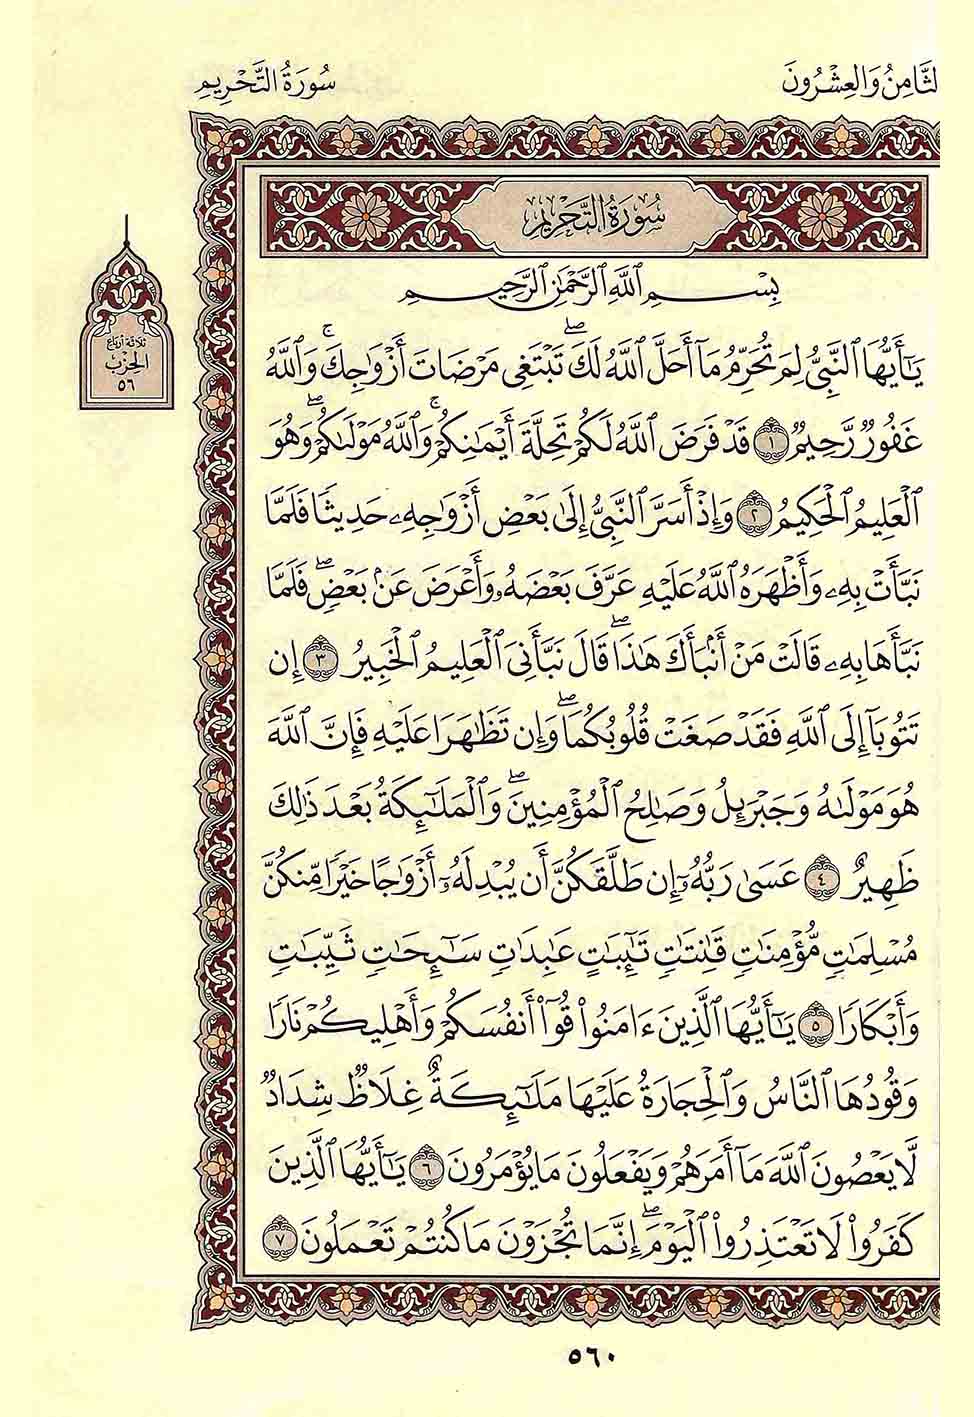 لثَّامِنُ وَالعِشْرُونَ
سُورَةُ التَّحْرِيمِ
سُورَةُ التَّحْرِيمِ
بِسْمِ ٱللَّهِ ٱلرَّحْمَٰنِ ٱلرَّحِيمِ
يَٰٓأَيُّهَا ٱلنَّبِىُّ لِمَ تُحَرِّمُ مَآ أَحَلَّ ٱللَّهُ لَكَ ۖ تَبْتَغِى مَرْضَاتَ أَزْوَٰجِكَ ۚ وَٱللَّهُ
غَفُورٌ رَّحِيمٌ ١ قَدْ فَرَضَ ٱللَّهُ لَكُمْ تَحِلَّةَ أَيْمَٰنِكُمْ ۚ وَٱللَّهُ مَوْلَىٰكُمْ ۖ وَهُوَ
ٱلْعَلِيمُ ٱلْحَكِيمُ ٢ وَإِذْ أَسَرَّ ٱلنَّبِىُّ إِلَىٰ بَعْضِ أَزْوَٰجِهِۦ حَدِيثًا فَلَمَّا
نَبَّأَتْ بِهِۦ وَأَظْهَرَهُ ٱللَّهُ عَلَيْهِ عَرَّفَ بَعْضَهُۥ وَأَعْرَضَ عَنۢ بَعْضٍ ۖ فَلَمَّا
نَبَّأَهَا بِهِۦ قَالَتْ مَنْ أَنۢبَأَكَ هَٰذَا ۖ قَالَ نَبَّأَنِىَ ٱلْعَلِيمُ ٱلْخَبِيرُ ٣ إِن
تَتُوبَآ إِلَى ٱللَّهِ فَقَدْ صَغَتْ قُلُوبُكُمَا ۖ وَإِن تَظَٰهَرَا عَلَيْهِ فَإِنَّ ٱللَّهَ
هُوَ مَوْلَىٰهُ وَجِبْرِيلُ وَصَٰلِحُ ٱلْمُؤْمِنِينَ ۖ وَٱلْمَلَٰٓئِكَةُ بَعْدَ ذَٰلِكَ
ظَهِيرٌ ٤ عَسَىٰ رَبُّهُۥٓ إِن طَلَّقَكُنَّ أَن يُبْدِلَهُۥٓ أَزْوَٰجًا خَيْرًا مِّنكُنَّ
مُسْلِمَٰتٍ مُّؤْمِنَٰتٍ قَٰنِتَٰتٍ تَٰٓئِبَٰتٍ عَٰبِدَٰتٍ سَٰٓئِحَٰتٍ ثَيِّبَٰتٍ
وَأَبْكَارًا ٥ يَٰٓأَيُّهَا ٱلَّذِينَ ءَامَنُوا۟ قُوٓا۟ أَنفُسَكُمْ وَأَهْلِيكُمْ نَارًا
وَقُودُهَا ٱلنَّاسُ وَٱلْحِجَارَةُ عَلَيْهَا مَلَٰٓئِكَةٌ غِلَاظٌ شِدَادٌ
لَّا يَعْصُونَ ٱللَّهَ مَآ أَمَرَهُمْ وَيَفْعَلُونَ مَا يُؤْمَرُونَ ٦ يَٰٓأَيُّهَا ٱلَّذِينَ
كَفَرُوا۟ لَا تَعْتَذِرُوا۟ ٱلْيَوْمَ ۖ إِنَّمَا تُجْزَوْنَ مَا كُنتُمْ تَعْمَلُونَ ٧
ثلاثة أرباع
الحِزْب
٥٦
٥٦٠